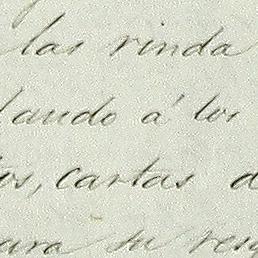 las rinda
lando á los
os, cartas d
ara su res